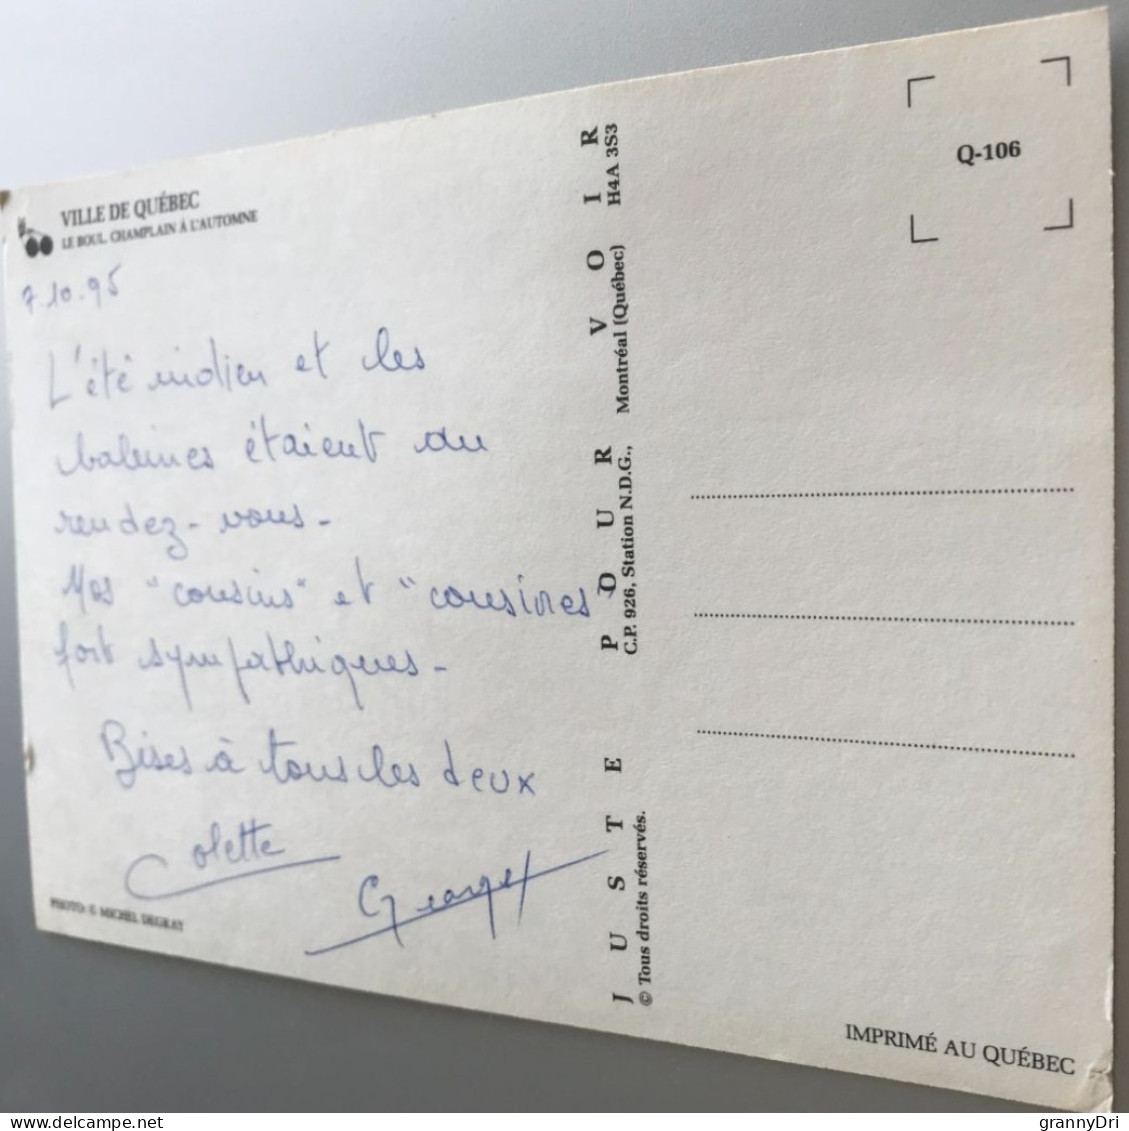 VILLE DE QUÉBEC
LE BOUL. CHAMPLAIN À L'AUTOMNE
7.10.95
L'été indien et les
baleines étaient au
rendez-vous-
Mes "cousins" et "cousines"
fort sympathiques-
Bises à tous les deux
Colette
Georges
PHOTO © MICHEL DEGRAY
JUSTE POUR VOIR
C.P. 926, Station N.D.G., Montréal (Québec) H4A 3S3
© Tous droits réservés.
Q-106
IMPRIMÉ AU QUÉBEC
delcampe.net
grannyDri